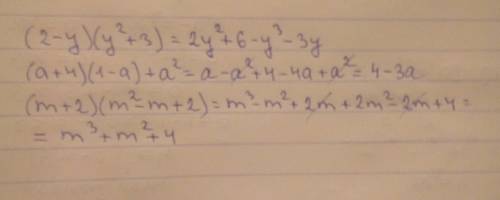 (2-y)(y²+3) = 2y²+6-y³-3y
(a+4)(1-a)+a² = a-a²+4-4a+a² = 4-3a
(m+2)(m²-m+2) = m³-m²+2m+2m²-2m+4 =
= m³+m²+4